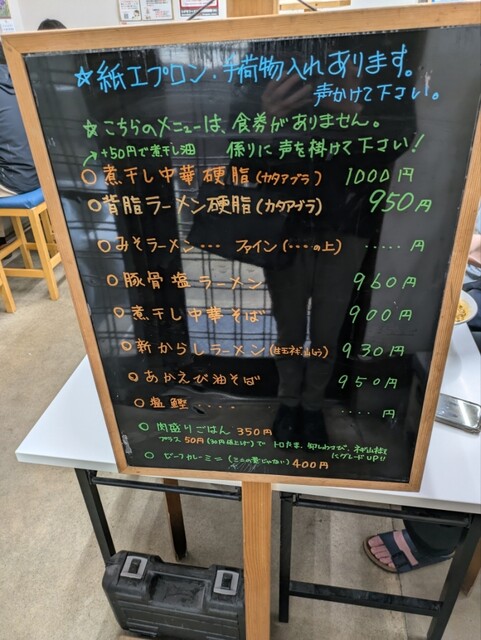 ☆紙エプロン・手荷物入れあります。
声かけて下さい。
☆こちらのメニューは、食券がありません。
+50円で煮干し油 係りに声を掛けて下さい!
○煮干し中華硬脂(カタアブラ) 1000円
○背脂ラーメン硬脂(カタアブラ) 950円
○みそラーメン・・・ ファイン(・・・の上) ・・・・・円
○豚骨塩ラーメン 960円
○煮干し中華そば 900円
○新からしラーメン 930円
○あかえび油そば 950円
○塩鰹・・・・ ・・・・円
○肉盛りごはん 350円
プラス50円 で トロたま、
にグレードUP!!
○ビーフカレーミニ 400円